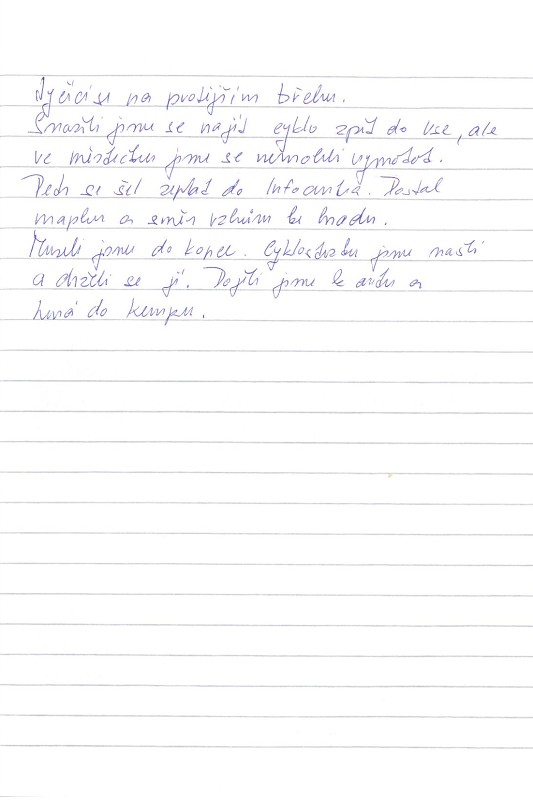 tyčící se na protějším břehu.
Snažili jsme se najít cyklo zpět do vsi, ale
ve městečku jsme se nemohli vymotat.
Petr se šel zeptat do Infocentra. Dostal
mapku a směr vzhůru ke hradu.
Museli jsme do kopce. Cyklostezku jsme našli
a drželi se jí. Dojeli jsme k autu a
hurá do kempu.